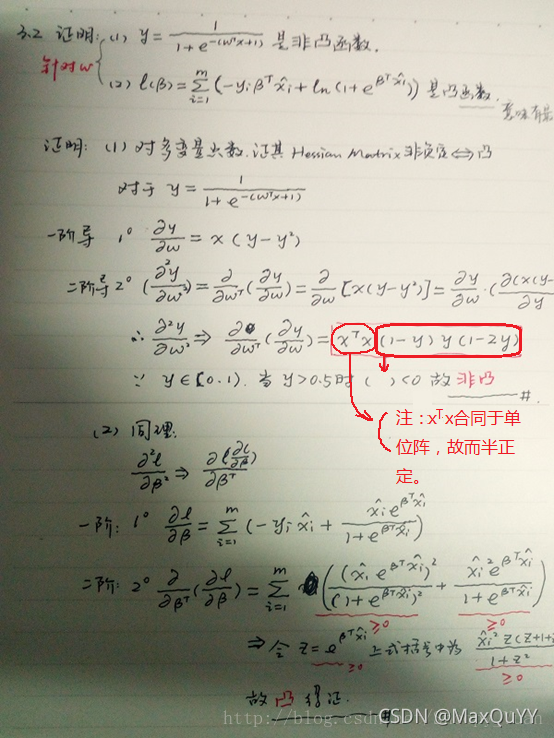 3.2 证明: (1) y = 1/(1+e^{-(w^T x+1)}) 是非凸函数.
针对w
(2) l(β) = Σ_{i=1}^{m} (-y_i β^T x̂_i + ln(1+e^{β^T x̂_i})) 是凸函数.
意味有最
证明: (1) 对多变量函数. 证其 Hessian Matrix 非负定 ⇔ 凸
对于 y = 1/(1+e^{-(w^T x+1)})
一阶导 1° ∂y/∂w = x(y-y²)
二阶导 2° (∂²y/∂w²) = ∂/∂w^T (∂y/∂w) = ∂/∂w [x(y-y²)] = ∂y/∂w · (∂(x(y-
∂y
∴ ∂²y/∂w² ⇒ ∂/∂w^T (∂y/∂w) = x^T x (1-y) y (1-2y)
∵ y∈[0.1). 当 y>0.5时 ( ) <0 故 非凸 #.
注：x^T x合同于单
位阵，故而半正
定。
(2) 同理.
∂²l/∂β² ⇒ ∂l(∂l/∂β)/∂β^T
一阶: 1° ∂l/∂β = Σ_{i=1}^{m} (-y_i x̂_i + x̂_i e^{β^T x̂_i}/(1+e^{β^T x̂_i}))
二阶: 2° ∂/∂β^T (∂l/∂β) = Σ_{i=1}^{m} ((x̂_i e^{β^T x̂_i})²/(1+e^{β^T x̂_i})² + x̂_i² e^{β^T x̂_i}/(1+e^{β^T x̂_i}))
≥0 ≥0
⇒ 令 z = e^{β^T x̂_i} 上式括号中为 x̂_i² z(z+1+
1+z²
≥0 ≥0
故凸得证. #
http://blog.csd
CSDN @MaxQuYY